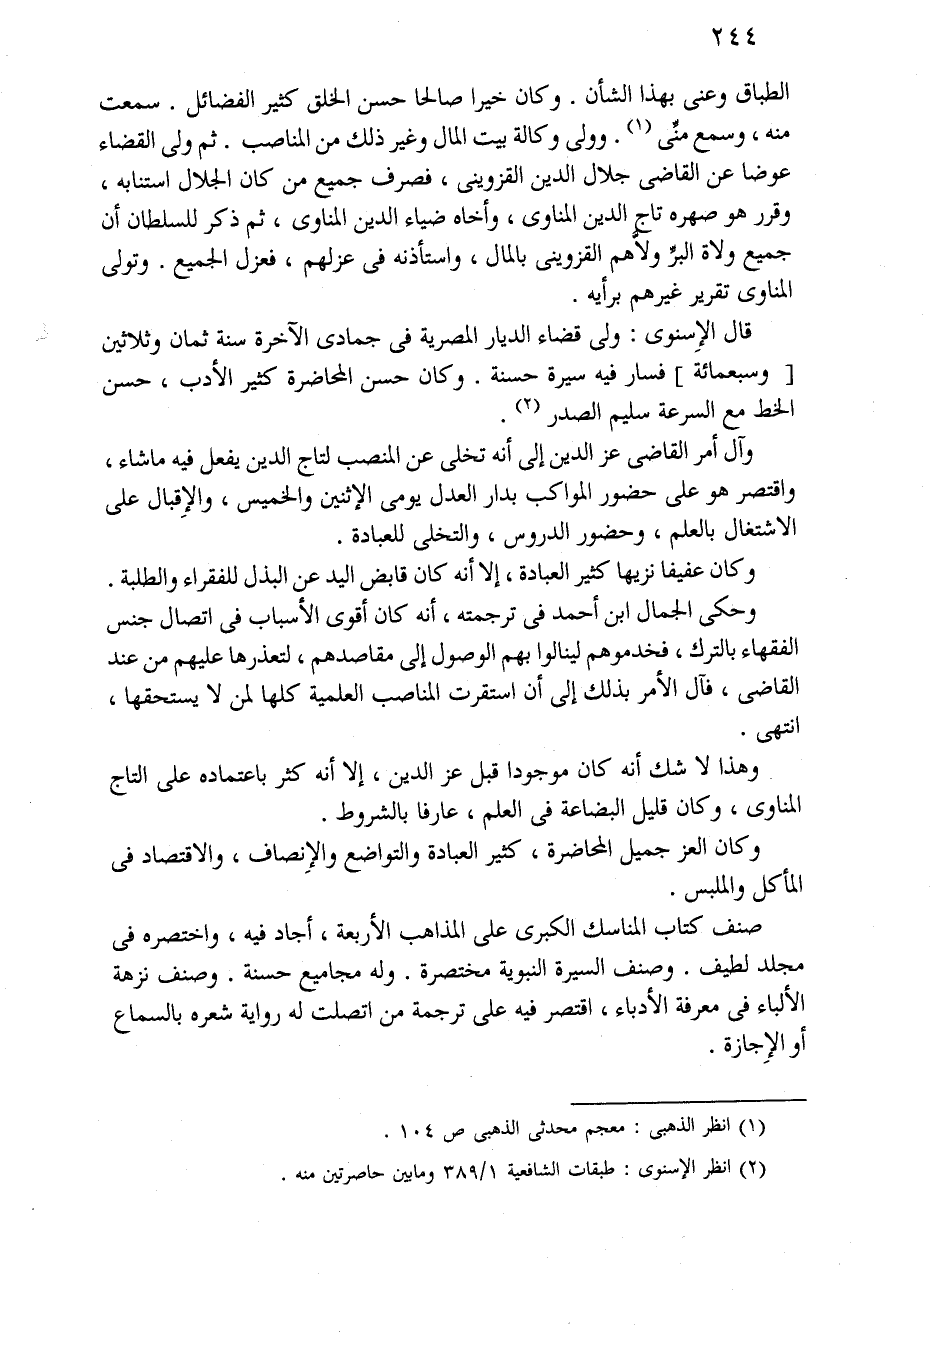 ٢٤٤
الطباق وعنى بهذا الشأن . وكان خيرا صالحا حسن الخلق كثير الفضائل . سمعت
منه ، وسمع منِّى (١) . وولى وكالة بيت المال وغير ذلك من المناصب . ثم ولى القضاء
عوضا عن القاضى جلال الدين القزوينى ، فصرف جميع من كان الجلال استنابه ،
وقرر هو صهره تاج الدين المناوى ، وأخاه ضياء الدين المناوى ، ثم ذكر للسلطان أن
جميع ولاة البرِّ ولاَّهم القزوينى بالمال ، واستأذنه فى عزلهم ، فعزل الجميع . وتولى
المناوى تقرير غيرهم برأيه .
قال الإسنوى : ولى قضاء الديار المصرية فى جمادى الآخرة سنة ثمان وثلاثين
[ وسبعمائة ] فسار فيه سيرة حسنة . وكان حسن المحاضرة كثير الأدب ، حسن
الخط مع السرعة سليم الصدر (٢) .
وآل أمر القاضى عز الدين إلى أنه تخلى عن المنصب لتاج الدين يفعل فيه ماشاء ،
واقتصر هو على حضور المواكب بدار العدل يومى الإثنين والخميس ، والإقبال على
الاشتغال بالعلم ، وحضور الدروس ، والتخلى للعبادة .
وكان عفيفا نزيها كثير العبادة ، إلا أنه كان قابض اليد عن البذل للفقراء والطلبة .
وحكى الجمال ابن أحمد فى ترجمته ، أنه كان أقوى الأسباب فى اتصال جنس
الفقهاء بالترك ، فخدموهم لينالوا بهم الوصول إلى مقاصدهم ، لتعذرها عليهم من عند
القاضى ، فآل الأمر بذلك إلى أن استقرت المناصب العلمية كلها لمن لا يستحقها ،
انتهى .
وهذا لا شك أنه كان موجودا قبل عز الدين ، إلا أنه كثر باعتماده على التاج
المناوى ، وكان قليل البضاعة فى العلم ، عارفا بالشروط .
وكان العز جميل المحاضرة ، كثير العبادة والتواضع والإنصاف ، والاقتصاد فى
المأكل والملبس .
صنف كتاب المناسك الكبرى على المذاهب الأربعة ، أجاد فيه ، واختصره فى
مجلد لطيف . وصنف السيرة النبوية مختصرة . وله مجاميع حسنة . وصنف نزهة
الألباء فى معرفة الأدباء ، اقتصر فيه على ترجمة من اتصلت له رواية شعره بالسماع
أو الإجازة .
(١) انظر الذهبى : معجم محدثى الذهبى ص ١٠٤ .
(٢) انظر الإسنوى : طبقات الشافعية ٣٨٩/١ ومابين حاصرتين منه .